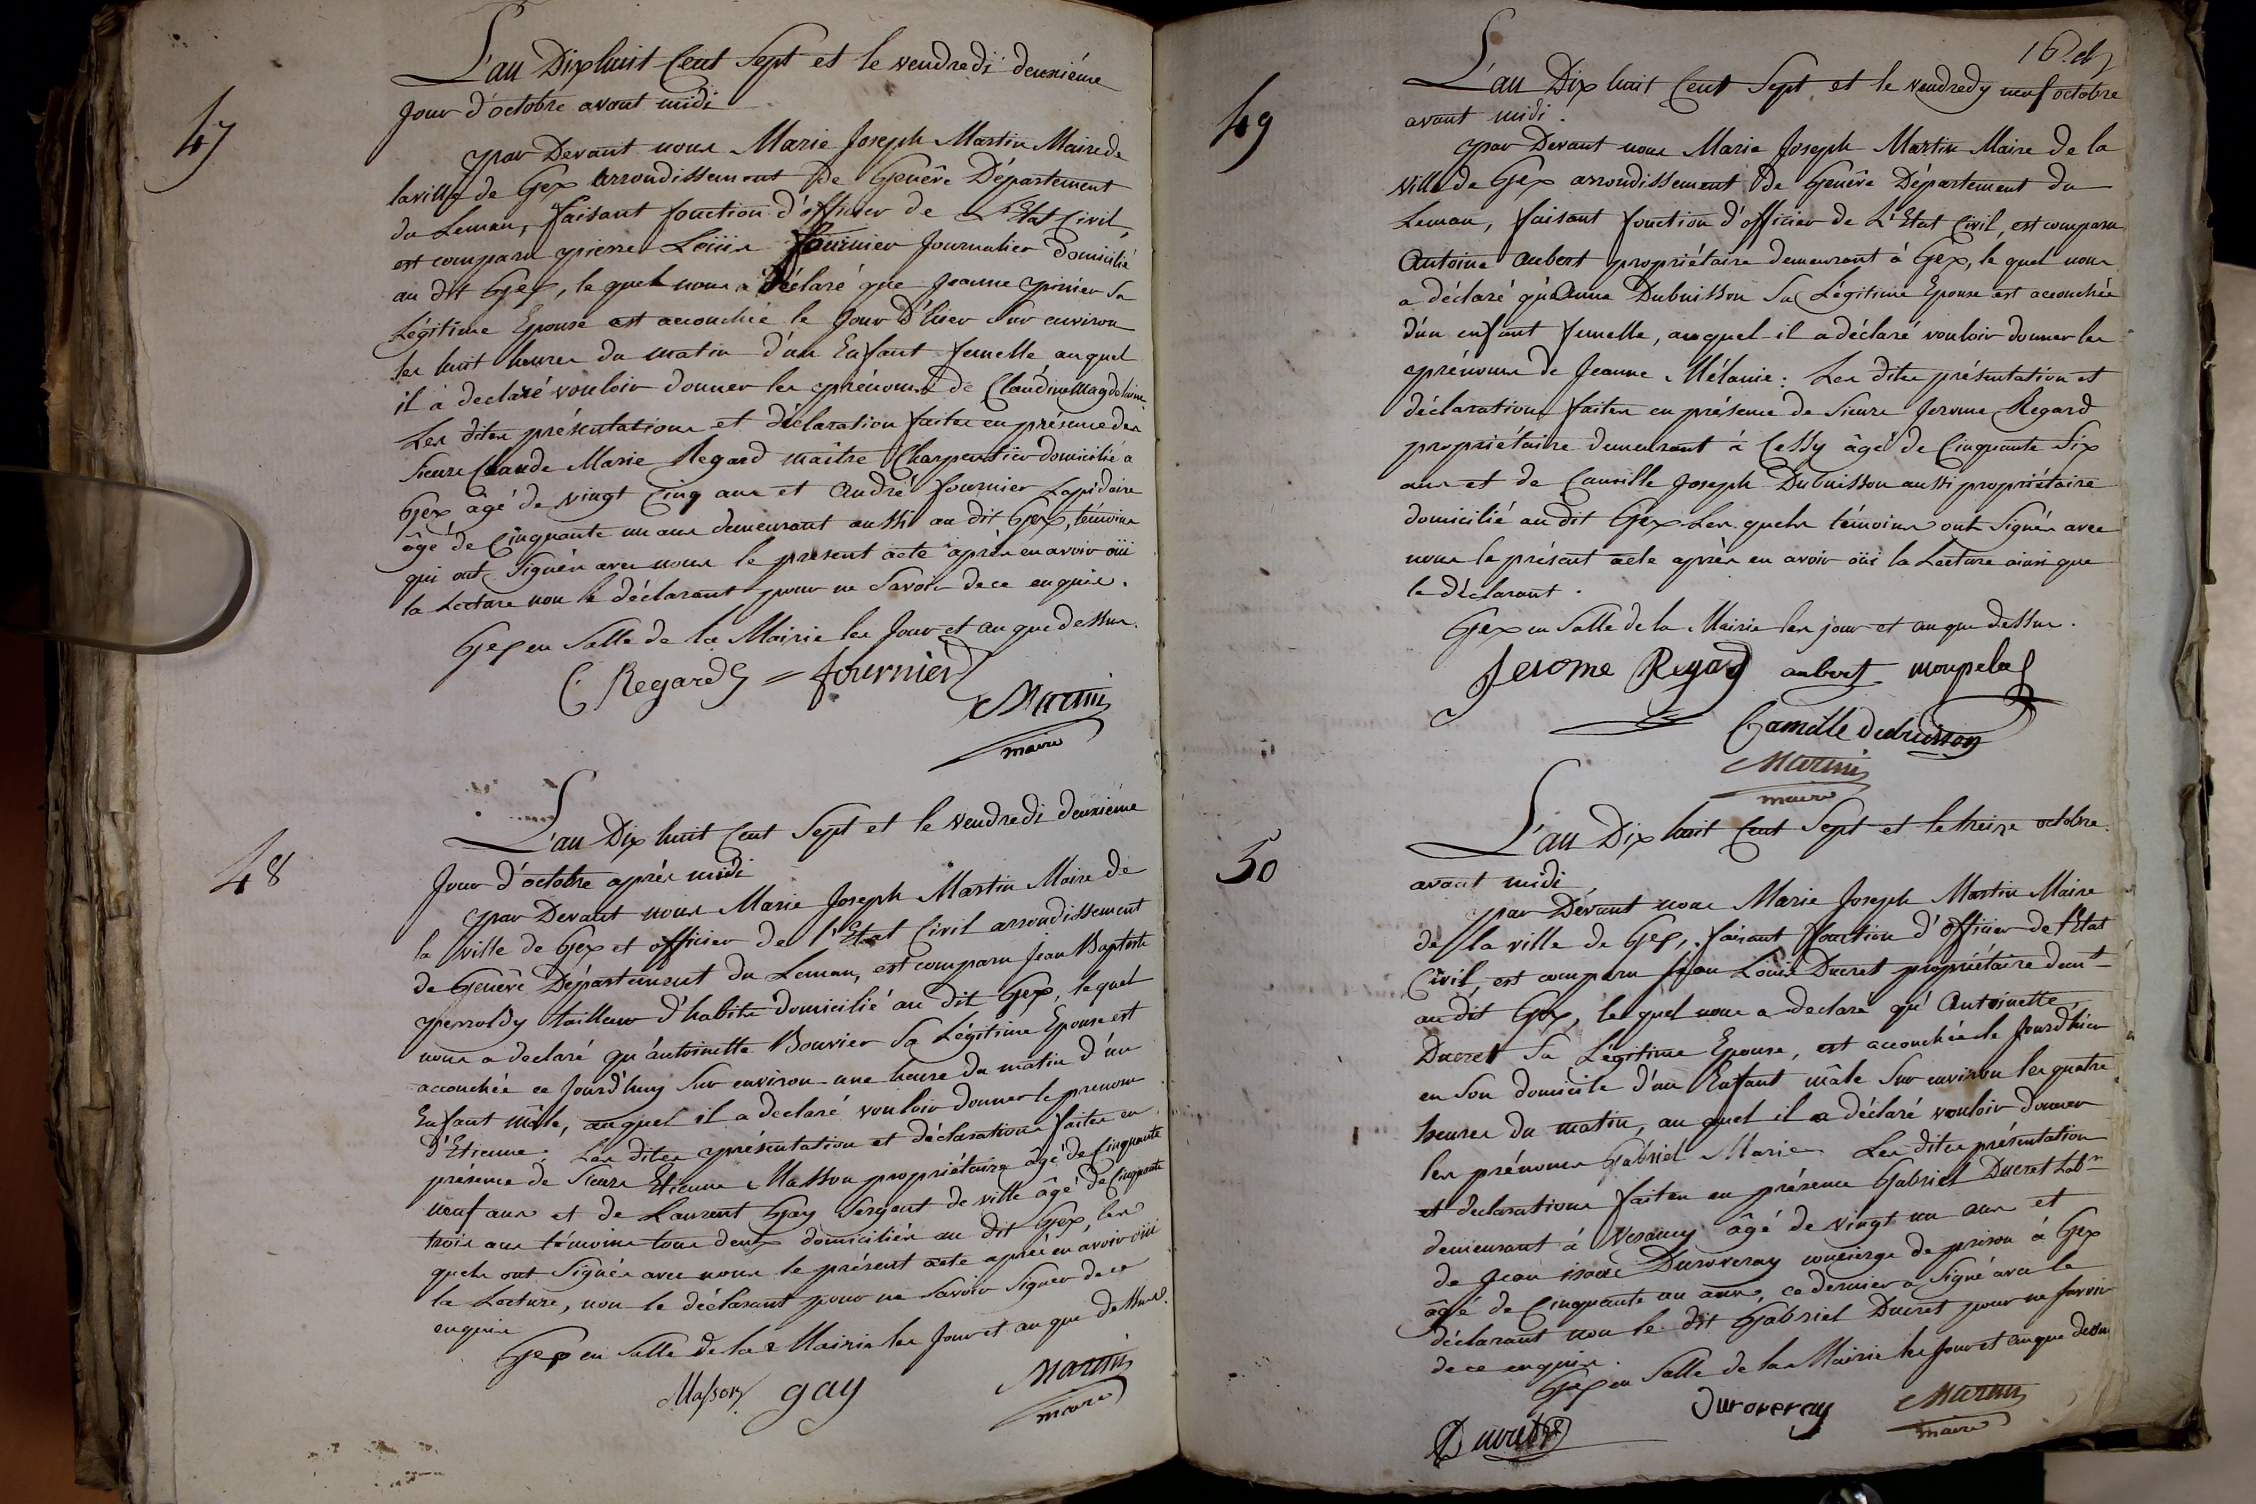 47
L'an Dix huit Cent Sept et le vendredi deuxième
Jour d'octobre avant midi
par Devant nous Marie Joseph Martin Maire de
la ville de Gex arrondissement de Genêve Département
du Leman, faisant fonction d'officier de L'Etat Civil,
est comparu pierre Loüis fournier Journalier domicilié
au dit Gex, le quel nous a déclaré que Jeanne
Légitime Epouse est accouchée le Jour D'hier Sur environ
les huit heures du matin d'un Enfant femelle auquel
il à declaré vouloir donner les prénoms de Claudine Magdelaine
Les dites présentations et déclaration faites en présence des
Sieurs Claude Marie Regard maître Charpentier domicilié a
Gex âgé de vingt Cinq ans et André fournier Lapidaire
âgé de Cinquante un ans demeurant aussi au dit Gex, témoins
qui ont Signés avec nous le present acte après en avoir oüi
la Lecture non le déclarant pour ne Savoir de ce enquis.
Gex en Salle de la Mairie les Jour et an que dessus.
C. Regard = fournier
Martin
maire
48
L'an Dix huit Cent Sept et le vendredi deuxième
Jour d'octobre après midi
par Devant nous Marie Joseph Martin Maire de
la ville de Gex et officier de l'Etat Civil arrondissement
de Genêve Département du Leman, est comparu Jean Baptiste
perroldy tailleur d'habits domicilié au dit Gex, lequel
nous a declaré qu'antoinette Bouvier Sa Légitime Epouse est
accouchée ce Jourd'huy Sur environ une heure du matin d'un
Enfant mâle, auquel il a declaré vouloir donner le prenom
d'Etienne. Les dites présentation et déclarations faites en
présence de Sieurs Etienne Masson propriétaire âgé de Cinquante
neuf ans et de Laurent Gay Sergent de ville âgé de Cinquante
trois ans témoins tous deux domiciliés au dit Gex, les
quels ont Signés avec nous le présent acte après en avoir oüi
la Lecture, non le déclarant pour ne Savoir Signer de ce
enquis
Gex en Salle de la Mairie les Jour et an que dessus.
Masson gay
Martin
maire
49
L'an Dix huit Cent Sept et le vendredy neuf octobre
avant midi.
par Devant nous Marie Joseph Martin Maire de la
ville de Gex arrondissement de Genêve Département du
Leman, faisant fonction d'officier de L'Etat Civil, est comparu
Antoine Aubert propriétaire demeurant à Gex, le quel nous
a déclaré qu'Anne Dubuisson Sa Légitime Epouse est accouchée
d'un enfant femelle, auquel il a déclaré vouloir donner les
prénoms de Jeanne Mélanie: Les dites présentation et
déclarations faites en présence de Sieurs Jerome Regard
propriétaire demeurant à Cessy âgé de Cinquante Six
ans et de Camille Joseph Dubuisson aussi propriétaire
domicilié au dit Gex. Les quels témoins ont Signés avec
nous le présent acte après en avoir oüi la Lecture ainsi que
le déclarant.
Gex en Salle de la Mairie les jour et an que dessus.
Jerome Regard aubert
Camille dubuisson
Martin
maire
50
L'an Dix huit Cent Sept et le treize octobre
avant midi
par Devant nous Marie Joseph Martin Maire
de la ville de Gex, faisant fonction d'officier de l'Etat
Civil, est comparu Jean Loüis Ducret propriétaire demt
au dit Gex, le quel nous a declaré qu'Antoinette
Ducret Sa Légitime Epouse, est accouchée le Jourd'hier
en Son domicile d'un Enfant mâle Sur environ les quatre
heures du matin, au quel il a déclaré vouloir donner
les prénoms Gabriel Marie. Les dites présentation
et declarations faites en présence Gabriel Ducret Labr
demeurant à Vesancy âgé de vingt un ans et
de Jean isaac Duroveray concierge de prison à Gex
âgé de Cinquante un ans, ce dernier a Signé avec le
déclarant non le dit Gabriel Ducret pour ne savoir
de ce enquis.
Gex en Salle de la Mairie les Jour et an que dessus
Duroveray Martin
maire
Ducret